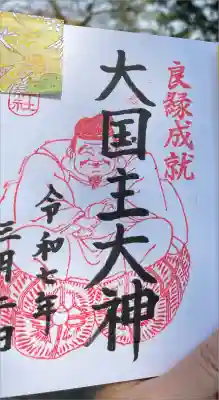 良縁成就
大国主大神
令和七年
三月二日
社